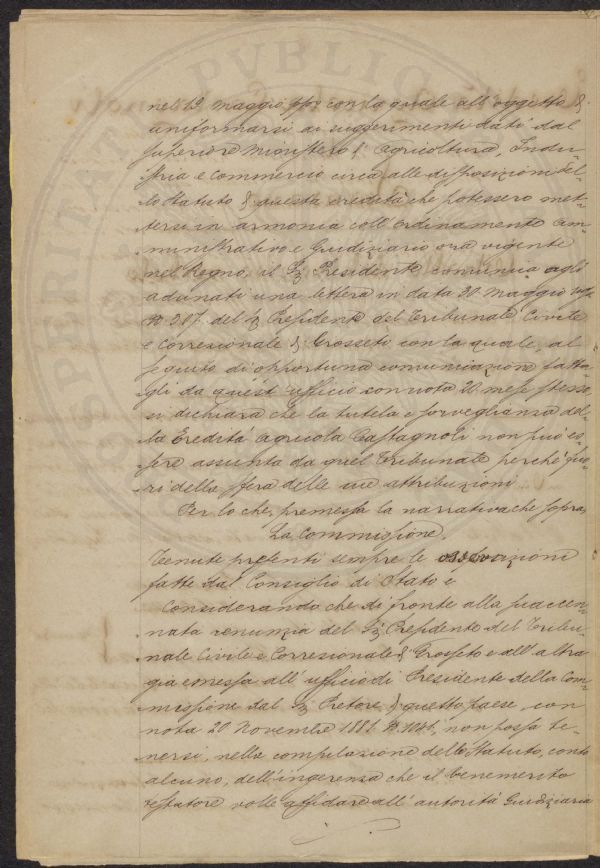 nel 1º Maggio ppo con la quale all'oggetto di
uniformarsi ai suggerimenti dati dal
Superiore Ministero d'Agricoltura, Indu-
stria e Commercio circa alle disposizioni del-
lo Statuto di questa eredità che potessero met-
tersi in armonia coll'ordinamento am-
ministrativo e Giudiziario ora vigente
nel Regno, il Sig. Presidente comunica agli
adunati una lettera in data 30 Maggio
N. 317 del Sig. Presidente del Tribunale Civile
e Correzionale di Grosseto con la quale, al
seguito di opportuna comunicazione fatta-
gli da quest'ufficio con nota 20 mese stesso
si dichiara che la tutela e sorveglianza del-
la Eredità Agricola Castagnoli non può es-
sere assunta da quel Tribunale perchè fuo-
ri della sfera delle sue attribuzioni
Per lo che, premessa la narrativa che sopra,
La Commissione.
Tenute presenti sempre le osservazioni
fatte dal Consiglio di Stato e
Considerando che di fronte alla suaccen-
nata renunzia del Sig. Presidente del Tribu-
nale Civile e Correzionale di Grosseto e all'altra
già emessa all'ufficio di Presidente della Com-
missione dal Sig. Pretore di questo paese, con
nota 20 Novembre 1881 N. 1046, non possa te-
nersi, nella compilazione dello Statuto, conto
alcuno, dell'ingerenza che il benemerito
testatore volle affidare all'autorità Giudiziaria